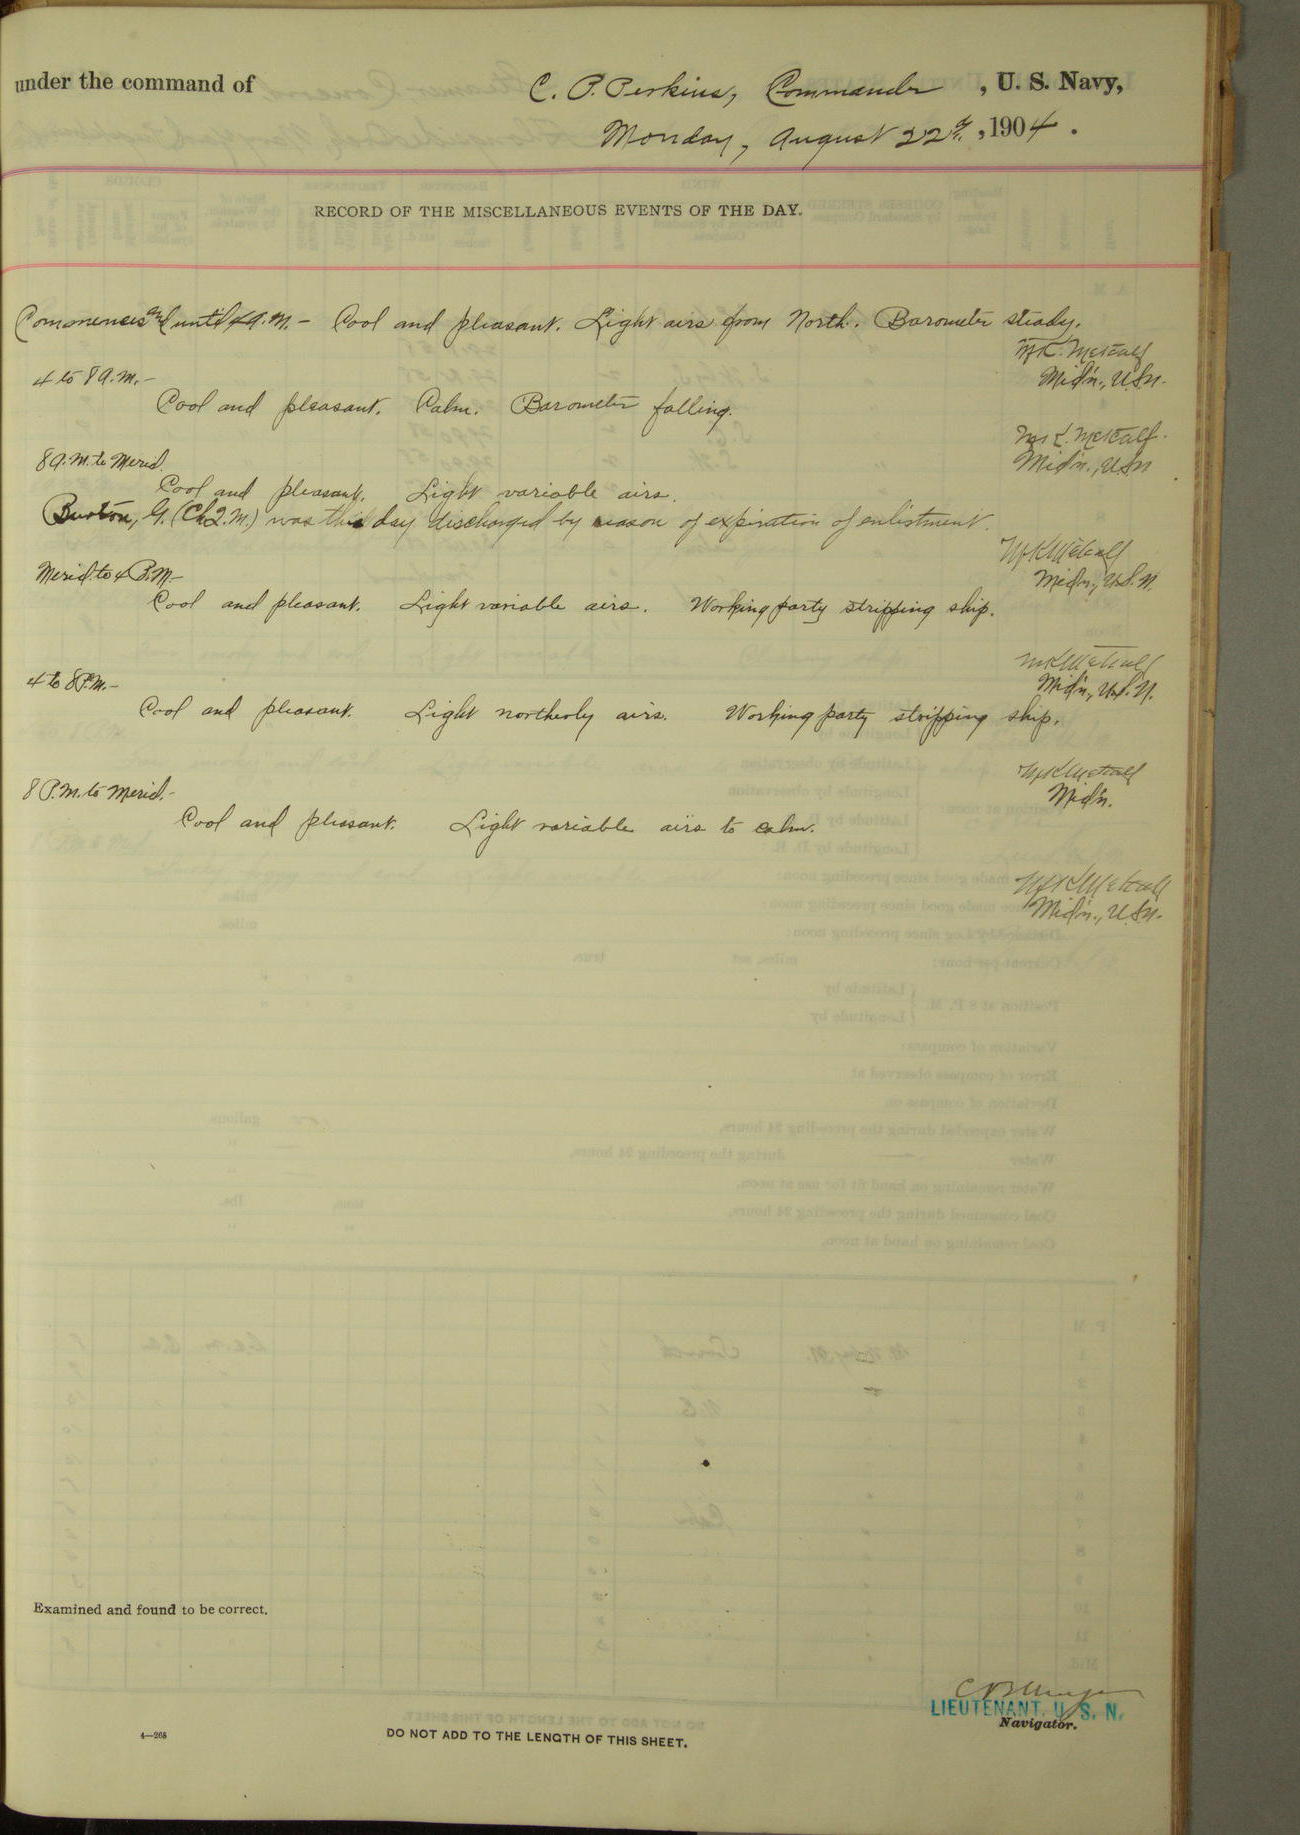 under the command of C. P. Perkins, Commander , U. S. Navy,
Monday, August 22d, , 1904 .
RECORD OF THE MISCELLANEOUS EVENTS OF THE DAY.
Commences and until 4 A.M.- Cool and pleasant. Light airs from North. Barometer steady.
M.K. Metcalf
Mid'n., U.S.N.
4 to 8 A.M.-
Cool and pleasant. Calm. Barometer falling.
M.K. Metcalf.
Mid'n., U.S.N
8 A.M. to Merid.
Cool and pleasant. Light variable airs.
Burton, G. (Ch. Q. M.) was this day discharged by reason of expiration of enlistment.
M.K. Metcalf
Mid'n., U.S.N.
Merid. to 4 P.M.-
Cool and pleasant. Light variable airs. Working party stripping ship.
M.K. Metcalf
Mid'n., U.S.N.
4 to 8 P.M.-
Cool and pleasant. Light northerly airs. Working party stripping ship.
M.K. Metcalf
Mid'n.
8 P.M. to Merid.-
Cool and pleasant. Light variable airs to calm.
M.K. Metcalf
Mid'n., U.S.N.
Examined and found to be correct.
LIEUTENANT, U. S. N.
Navigator.
4—268
DO NOT ADD TO THE LENGTH OF THIS SHEET.